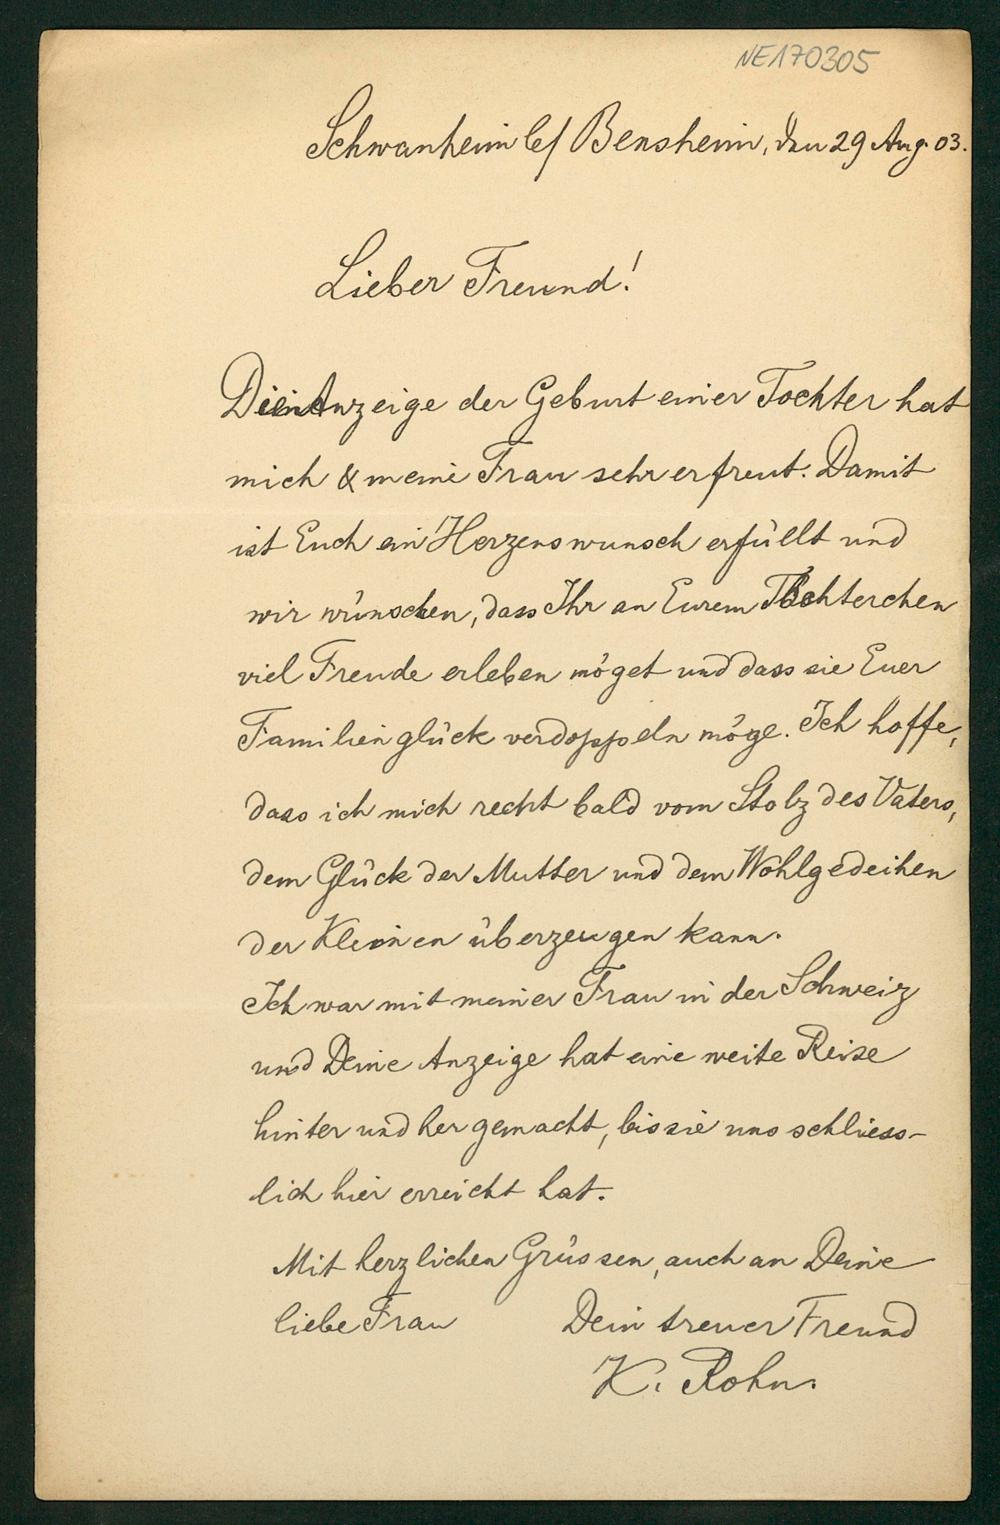 NE170305
Schwanheim b/ Bensheim, den 29 Aug. 03.
Lieber Freund!
Anzeige der Geburt einer Tochter hat
mich & meine Frau sehr erfreut. Damit
ist Euch ein Herzenswunsch erfüllt und
wir wünschen, dass Ihr an Eurem Töchterchen
viel Freude erleben möget und dass sie Euer
Familienglück verdoppeln möge. Ich hoffe,
dass ich mich recht bald vom Stolz des Vaters,
dem Glück der Mutter und dem Wohlgedeihen
der Kleinen überzeugen kann.
Ich war mit meiner Frau in der Schweiz
und Deine Anzeige hat eine weite Reise
hinter und her gemacht, bis sie uns schliess-
lich hier erreicht hat.
Mit herzlichen Grüssen, auch an Deine
liebe Frau Dein treuer Freund
K. Rohn.